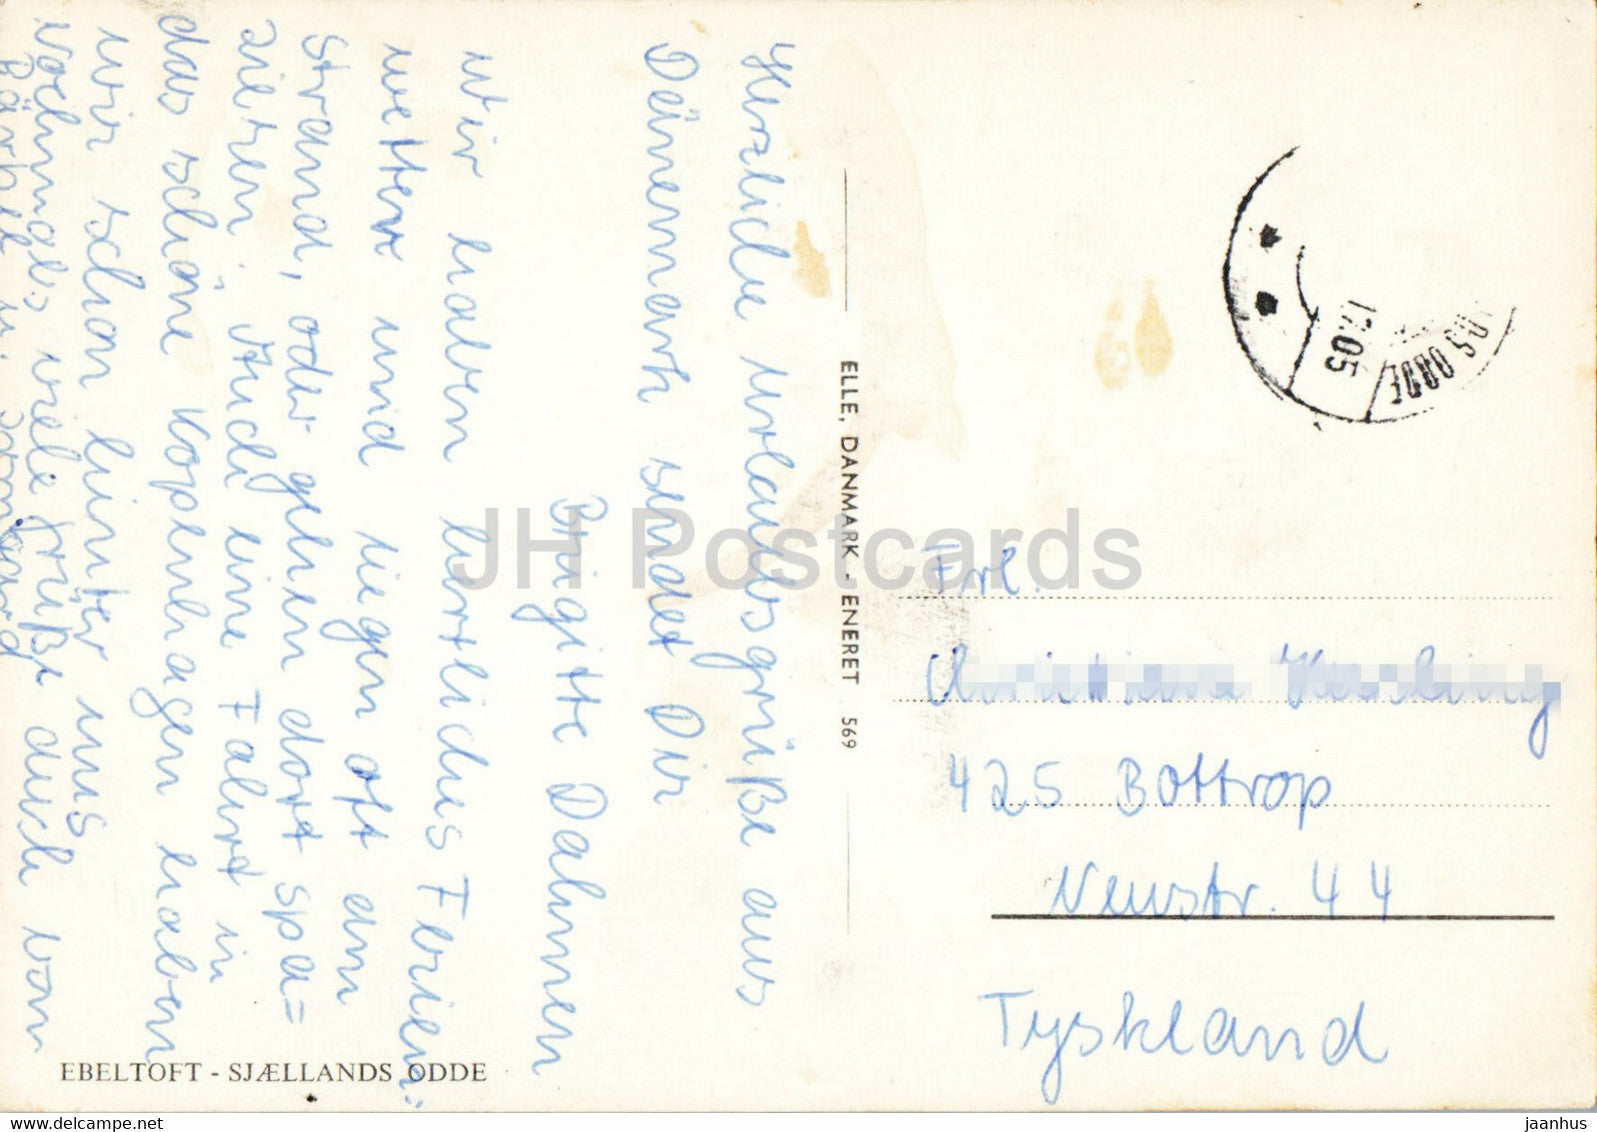 Herzliche Urlaubsgrüße aus
Dänemark sendet Dir
Brigitte Dahmen
Wir haben herrliches Ferien=
wetter und liegen oft am
Strand, oder gehen dort spa=
zieren. Auch eine Fahrt in
das schöne Kopenhagen haben
wir schon hinter uns
Nochmals viele Grüße auch von
Bärbel u.
ELLE, DANMARK - ENERET 569
17.05
ODDE
Frl.
425 Bottrop
Neustr. 44
Tyskland
EBELTOFT - SJÆLLANDS ODDE
JH Postcards
www.delcampe.net
jaanhus